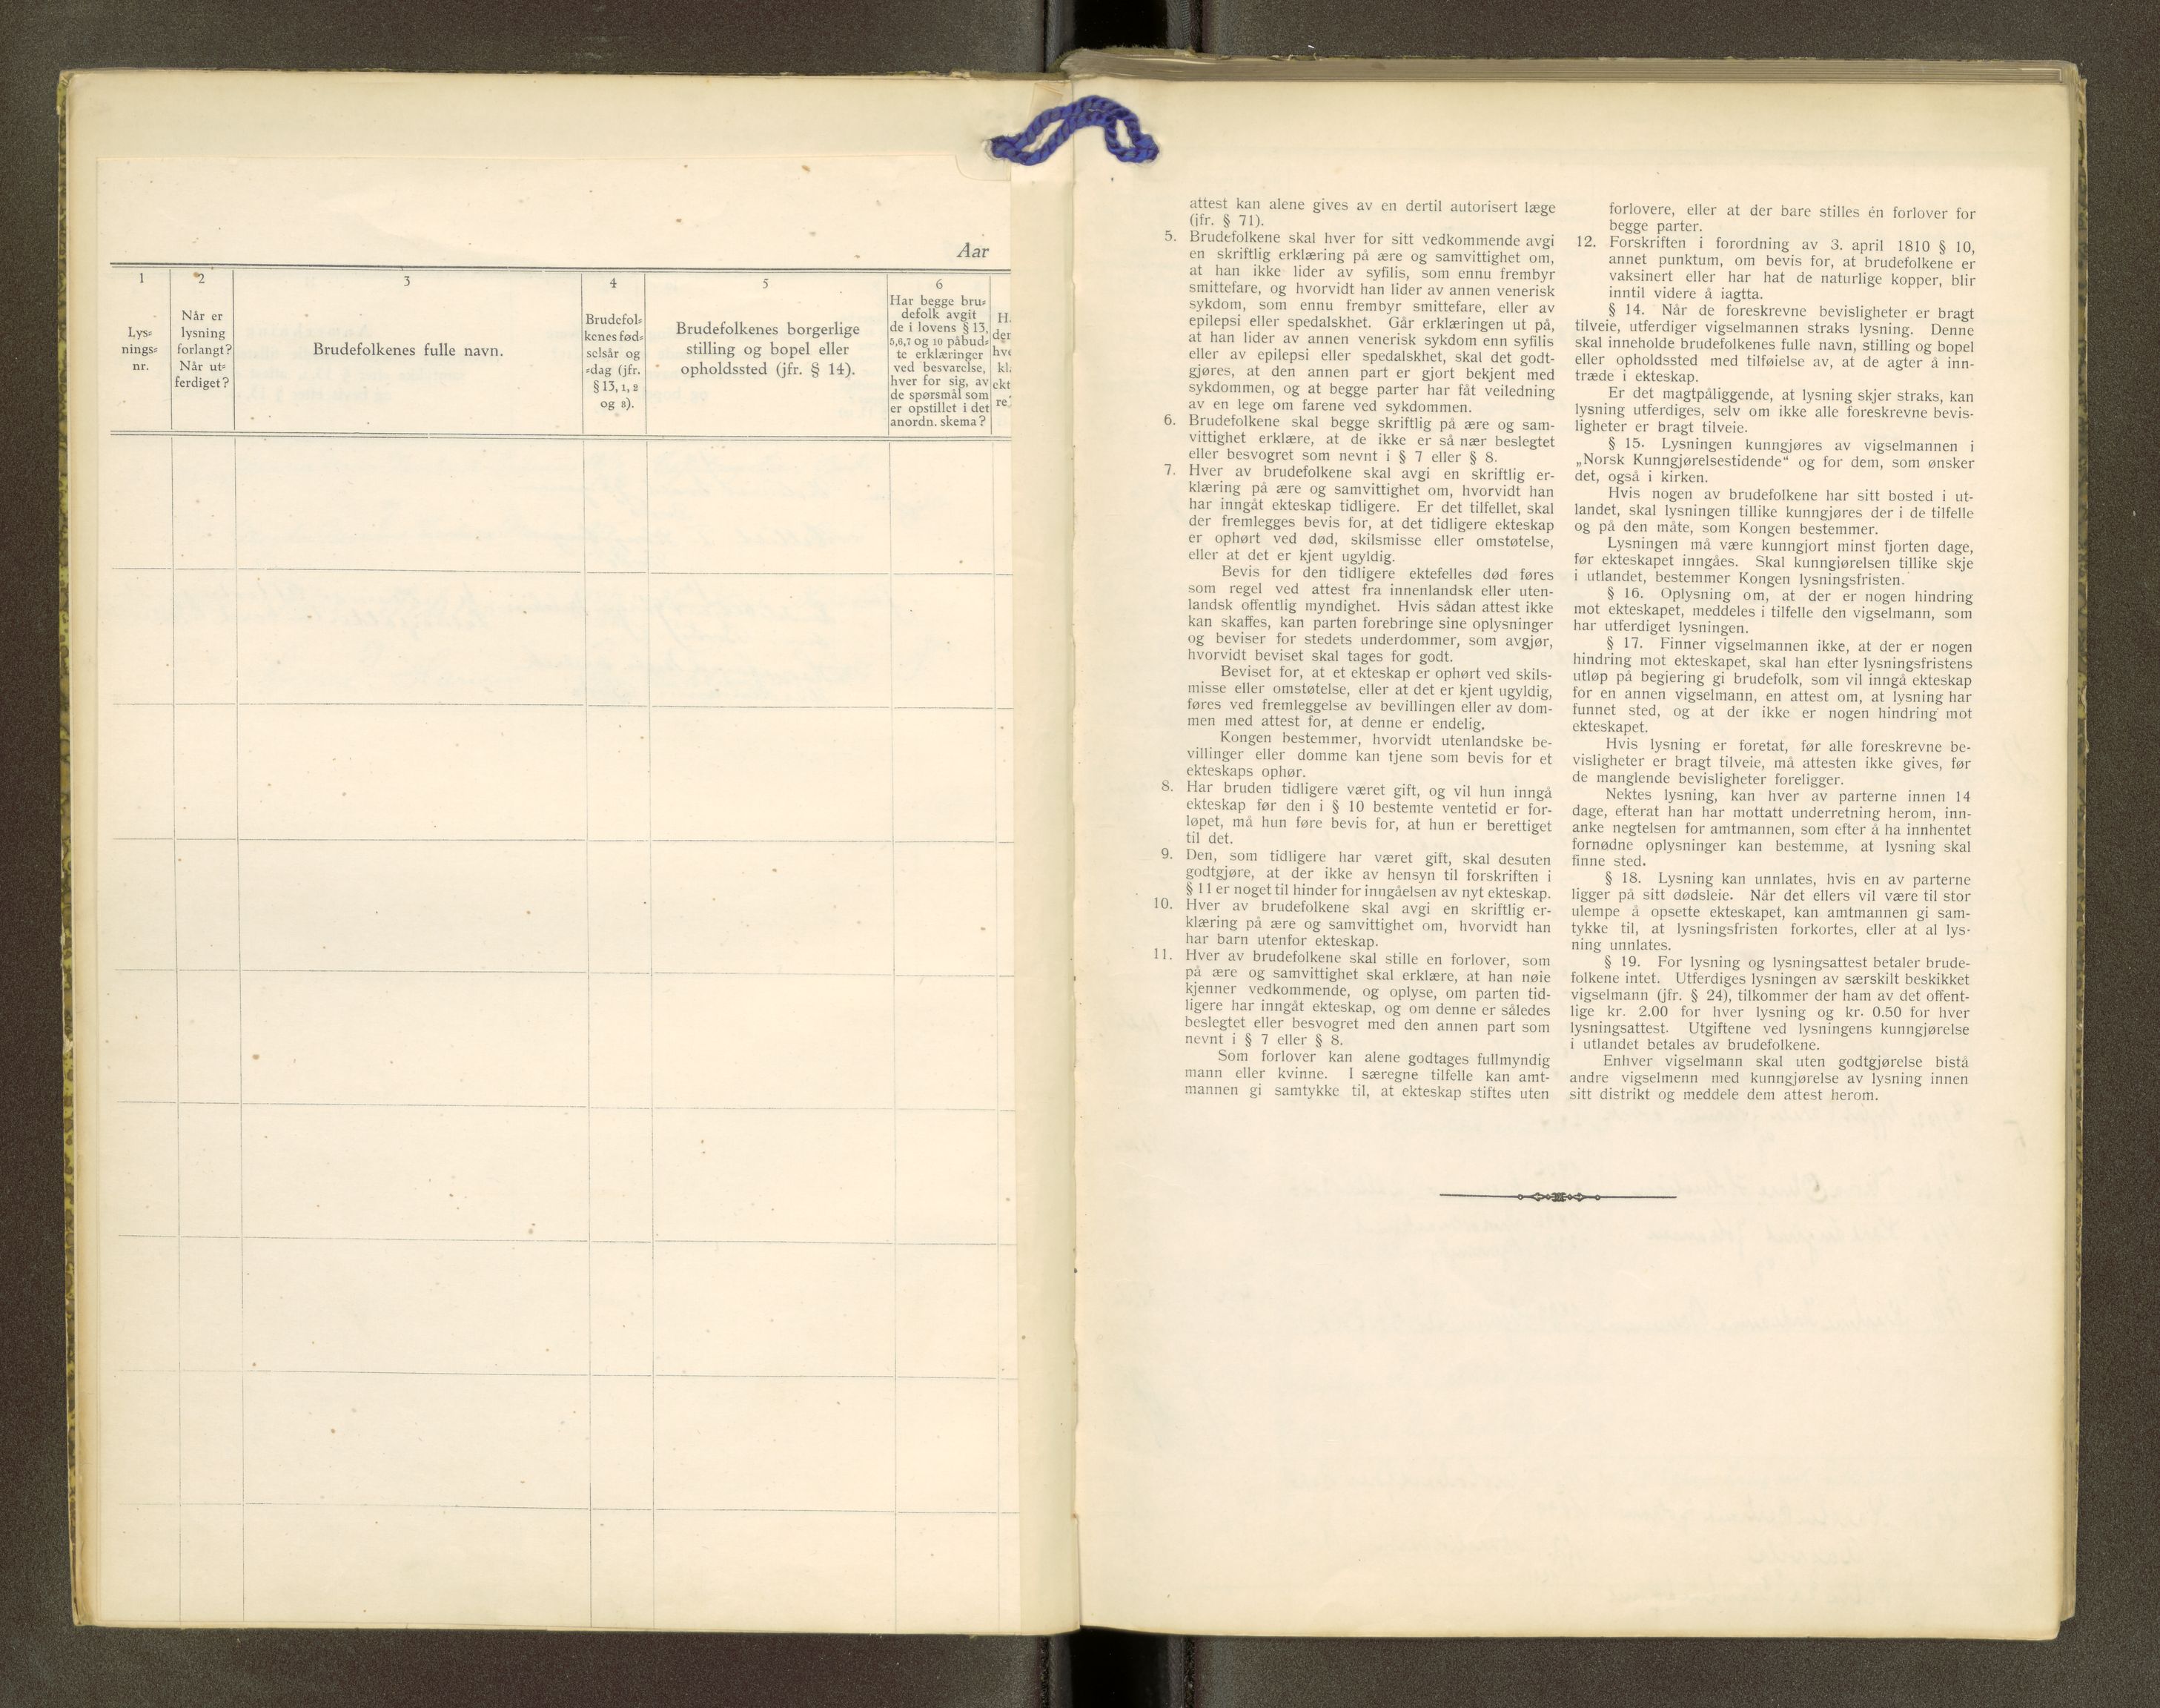 Aar
1
Lys-
nings-
nr.
2
Når er
lysning
forlangt?
Når ut-
ferdiget?
3
Brudefolkenes fulle navn.
4
Brudefol-
kenes fød-
selsår og
-dag (jfr.
§ 13, 1, 2
og 8).
5
Brudefolkenes borgerlige
stilling og bopel eller
opholdssted (jfr. § 14).
6
Har begge bru-
defolk avgit
de i lovens § 13,
5,6,7 og 10 påbud-
te erklæringer
ved besvarelse,
hver for sig, av
de spørsmål som
er opstillet i det
anordn. skema?
attest kan alene gives av en dertil autorisert læge
(jfr. § 71).
5. Brudefolkene skal hver for sitt vedkommende avgi
en skriftlig erklæring på ære og samvittighet om,
at han ikke lider av syfilis, som ennu frembyr
smittefare, og hvorvidt han lider av annen venerisk
sykdom, som ennu frembyr smittefare, eller av
epilepsi eller spedalskhet. Går erklæringen ut på,
at han lider av annen venerisk sykdom enn syfilis
eller av epilepsi eller spedalskhet, skal det godt-
gjøres, at den annen part er gjort bekjent med
sykdommen, og at begge parter har fåt veiledning
av en lege om farene ved sykdommen.
6. Brudefolkene skal begge skriftlig på ære og sam-
vittighet erklære, at de ikke er så nær beslegtet
eller besvogret som nevnt i § 7 eller § 8.
7. Hver av brudefolkene skal avgi en skriftlig er-
klæring på ære og samvittighet om, hvorvidt han
har inngåt ekteskap tidligere. Er det tilfellet, skal
der fremlegges bevis for, at det tidligere ekteskap
er ophørt ved død, skilsmisse eller omstøtelse,
eller at det er kjent ugyldig.
Bevis for den tidligere ektefelles død føres
som regel ved attest fra innenlandsk eller uten-
landsk offentlig myndighet. Hvis sådan attest ikke
kan skaffes, kan parten forebringe sine oplysninger
og beviser for stedets underdommer, som avgjør,
hvorvidt beviset skal tages for godt.
Beviset for, at et ekteskap er ophørt ved skils-
misse eller omstøtelse, eller at det er kjent ugyldig,
føres ved fremleggelse av bevillingen eller av dom-
men med attest for, at denne er endelig.
Kongen bestemmer, hvorvidt utenlandske be-
villinger eller domme kan tjene som bevis for et
ekteskaps ophør.
8. Har bruden tidligere været gift, og vil hun inngå
ekteskap før den i § 10 bestemte ventetid er for-
løpet, må hun føre bevis for, at hun er berettiget
til det.
9. Den, som tidligere har været gift, skal desuten
godtgjøre, at der ikke av hensyn til forskriften i
§ 11 er noget til hinder for inngåelsen av nyt ekteskap.
10. Hver av brudefolkene skal avgi en skriftlig er-
klæring på ære og samvittighet om, hvorvidt han
har barn utenfor ekteskap.
11. Hver av brudefolkene skal stille en forlover, som
på ære og samvittighet skal erklære, at han nøie
kjenner vedkommende, og oplyse, om parten tid-
ligere har inngåt ekteskap, og om denne er således
beslegtet eller besvogret med den annen part som
nevnt i § 7 eller § 8.
Som forlover kan alene godtages fullmyndig
mann eller kvinne. I særegne tilfelle kan amt-
mannen gi samtykke til, at ekteskap stiftes uten
forlovere, eller at der bare stilles én forlover for
begge parter.
12. Forskriften i forordning av 3. april 1810 § 10,
annet punktum, om bevis for, at brudefolkene er
vaksinert eller har hat de naturlige kopper, blir
inntil videre å iagtta.
§ 14. Når de foreskrevne bevisligheter er bragt
tilveie, utferdiger vigselmannen straks lysning. Denne
skal inneholde brudefolkenes fulle navn, stilling og bopel
eller opholdssted med tilføielse av, at de agter å inn-
træde i ekteskap.
Er det magtpåliggende, at lysning skjer straks, kan
lysning utferdiges, selv om ikke alle foreskrevne bevis-
ligheter er bragt tilveie.
§ 15. Lysningen kunngjøres av vigselmannen i
„Norsk Kunngjørelsestidende“ og for dem, som ønsker
det, også i kirken.
Hvis nogen av brudefolkene har sitt bosted i ut-
landet, skal lysningen tillike kunngjøres der i de tilfelle
og på den måte, som Kongen bestemmer.
Lysningen må være kunngjort minst fjorten dage,
før ekteskapet inngåes. Skal kunngjørelsen tillike skje
i utlandet, bestemmer Kongen lysningsfristen.
§ 16. Oplysning om, at der er nogen hindring
mot ekteskapet, meddeles i tilfelle den vigselmann, som
har utferdiget lysningen.
§ 17. Finner vigselmannen ikke, at der er nogen
hindring mot ekteskapet, skal han efter lysningsfristens
utløp på begjering gi brudefolk, som vil inngå ekteskap
for en annen vigselmann, en attest om, at lysning har
funnet sted, og at der ikke er nogen hindring mot
ekteskapet.
Hvis lysning er foretat, før alle foreskrevne be-
visligheter er bragt tilveie, må attesten ikke gives, før
de manglende bevisligheter foreligger.
Nektes lysning, kan hver av parterne innen 14
dage, efterat han har mottatt underretning herom, inn-
anke negtelsen for amtmannen, som efter å ha innhentet
fornødne oplysninger kan bestemme, at lysning skal
finne sted.
§ 18. Lysning kan unnlates, hvis en av parterne
ligger på sitt dødsleie. Når det ellers vil være til stor
ulempe å opsette ekteskapet, kan amtmannen gi sam-
tykke til, at lysningsfristen forkortes, eller at al lys-
ning unnlates.
§ 19. For lysning og lysningsattest betaler brude-
folkene intet. Utferdiges lysningen av særskilt beskikket
vigselmann (jfr. § 24), tilkommer der ham av det offent-
lige kr. 2.00 for hver lysning og kr. 0.50 for hver
lysningsattest. Utgiftene ved lysningens kunngjørelse
i utlandet betales av brudefolkene.
Enhver vigselmann skal uten godtgjørelse bistå
andre vigselmenn med kunngjørelse av lysning innen
sitt distrikt og meddele dem attest herom.